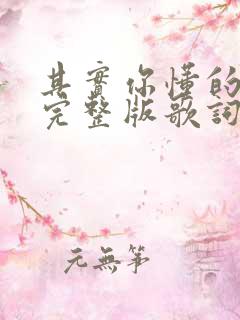 其實你懂的
完整版歌詞
元無筆